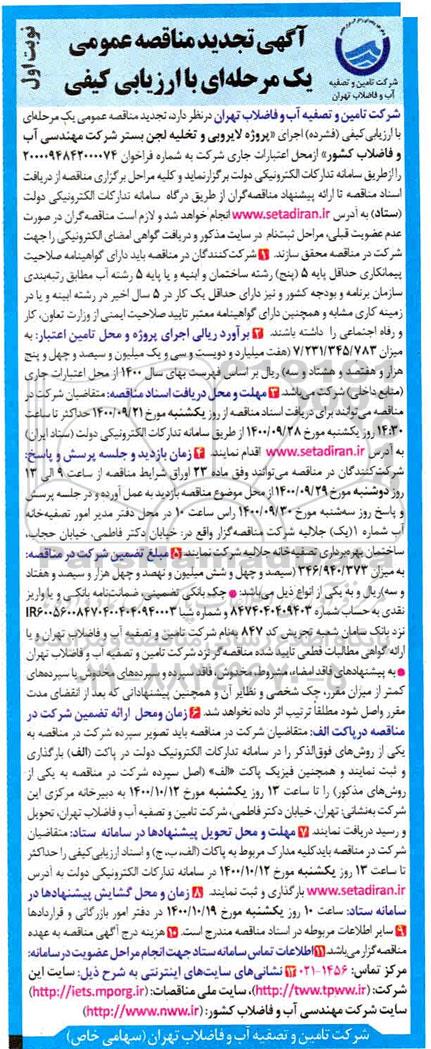 نوبت اول
آگهی تجدید مناقصه عمومی
یک مرحله‌ای با ارزیابی کیفی
شرکت تامین و تصفیه
آب و فاضلاب تهران
شرکت تامین و تصفیه آب و فاضلاب تهران درنظر دارد، تجدید مناقصه عمومی یک مرحله‌ای
با ارزیابی کیفی (فشرده) اجرای «پروژه لایروبی و تخلیه لجن بستر شرکت مهندسی آب
و فاضلاب کشور» ازمحل اعتبارات جاری شرکت به شماره فراخوان ۲۰۰۰۰۹۴۸۴۲۰۰۰۰۷۴
را ازطریق سامانه تدارکات الکترونیکی دولت برگزارنماید و کلیه مراحل برگزاری مناقصه از دریافت
اسناد مناقصه تا ارائه پیشنهاد مناقصه‌گران از طریق درگاه سامانه تدارکات الکترونیکی دولت
(ستاد) به آدرس www.setadiran.ir انجام خواهد شد و لازم است مناقصه‌گران در صورت
عدم عضویت قبلی، مراحل ثبت‌نام در سایت مذکور و دریافت گواهی امضای الکترونیکی را جهت
شرکت در مناقصه محقق سازند. ۱ شرکت‌کنندگان در مناقصه باید دارای گواهینامه صلاحیت
پیمانکاری حداقل پایه ۵ (پنج) رشته ساختمان و ابنیه و یا پایه ۵ رشته آب مطابق رتبه‌بندی
سازمان برنامه و بودجه کشور و نیز دارای حداقل یک کار در ۵ سال اخیر در رشته ابنیه و یا در
زمینه کاری مشابه و همچنین دارای گواهینامه معتبر تایید صلاحیت ایمنی از وزارت تعاون، کار
و رفاه اجتماعی را داشته باشند. ۲ برآورد ریالی اجرای پروژه و محل تامین اعتبار: به
میزان ۷/۲۳۱/۳۴۵/۷۸۳ (هفت میلیارد و دویست و سی و یک میلیون و سیصد و چهل و پنج
هزار و هفتصد و هشتاد و سه) ریال بر اساس فهرست بهای سال ۱۴۰۰ از محل اعتبارات جاری
(منابع داخلی) شرکت می‌باشد. ۳ مهلت و محل دریافت اسناد مناقصه: متقاضیان شرکت در
مناقصه می‌توانند برای دریافت اسناد مناقصه از روز یکشنبه مورخ ۱۴۰۰/۰۹/۲۱ حداکثر تا ساعت
۱۴:۳۰ روز یکشنبه مورخ ۱۴۰۰/۰۹/۲۸ از طریق سامانه تدارکات الکترونیکی دولت (ستاد ایران)
به آدرس www.setadiran.ir اقدام نمایند. ۴ زمان بازدید و جلسه پرسش و پاسخ:
شرکت‌کنندگان در مناقصه می‌توانند وفق ماده ۲۳ اوراق شرایط مناقصه از ساعت ۹ الی ۱۳
روز دوشنبه مورخ ۱۴۰۰/۰۹/۲۹ از محل موضوع مناقصه بازدید به عمل آورده و در جلسه پرسش
و پاسخ روز سه‌شنبه مورخ ۱۴۰۰/۰۹/۳۰ راس ساعت ۱۰ در محل دفتر مدیر امور تصفیه‌خانه
آب شماره ۱(یک) جلالیه شرکت مناقصه‌گزار واقع در: خیابان دکتر فاطمی، خیابان حجاب،
ساختمان بهره‌برداری تصفیه‌خانه جلالیه شرکت نمایند. ۵ مبلغ تضمین شرکت در مناقصه:
به میزان ۳۴۶/۹۴۰/۳۷۳ (سیصد و چهل و شش میلیون و نهصد و چهل هزار و سیصد و هفتاد
و سه) ریال و به یکی از انواع ذیل می‌باشد: ● چک بانکی تضمینی، ضمانت‌نامه بانکی و یا واریز
نقدی به حساب شماره ۸۴۷۴۰۴۰۴۰۹۴۰۳ و شماره شبا
نزد بانک سامان شعبه تجریش کد ۸۴۷ به‌نام شرکت تامین و تصفیه آب و فاضلاب تهران و یا
ارائه گواهی مطالبات قطعی تایید شده مناقصه‌گر نزد شرکت تامین و تصفیه آب و فاضلاب تهران
● به پیشنهادهای فاقد امضاء، مشروط، مخدوش، فاقد سپرده و سپرده‌های مخدوش یا سپرده‌های
کمتر از میزان مقرر، چک شخصی و نظایر آن و همچنین پیشنهاداتی که بعد از انقضای مدت
مقرر واصل شود مطلقاً ترتیب اثر داده نخواهد شد. ۶ زمان ومحل ارائه تضمین شرکت در
مناقصه درپاکت الف: متقاضیان شرکت در مناقصه باید تصویر سپرده شرکت در مناقصه به
یکی از روش‌های فوق‌الذکر را در سامانه تدارکات الکترونیک دولت در پاکت (الف) بارگذاری
و ثبت نمایند و همچنین فیزیک پاکت «الف» (اصل سپرده شرکت در مناقصه به یکی از
روش‌های مذکور) را تا ساعت ۱۳ روز یکشنبه مورخ ۱۴۰۰/۱۰/۱۲ به دبیرخانه مرکزی این
شرکت به‌نشانی: تهران، خیابان دکتر فاطمی، شرکت تامین و تصفیه آب و فاضلاب تهران، تحویل
و رسید دریافت نمایند. ۷ مهلت و محل تحویل پیشنهادها در سامانه ستاد: متقاضیان
شرکت در مناقصه باید کلیه مدارک مربوط به پاکات (الف، ب، ج) و اسناد ارزیابی کیفی را حداکثر
تا ساعت ۱۳ روز یکشنبه مورخ ۱۴۰۰/۱۰/۱۲ در سامانه تدارکات الکترونیکی دولت به آدرس
www.setadiran.ir بارگذاری و ثبت نمایند. ۸ زمان و محل گشایش پیشنهادها در
سامانه ستاد: ساعت ۱۰ روز یکشنبه مورخ ۱۴۰۰/۱۰/۱۹ در دفتر امور بازرگانی و قراردادها
۹ سایر اطلاعات مربوطه در اسناد مناقصه مندرج است. ۱۰ هزینه درج آگهی مناقصه به عهده
مناقصه‌گزار می‌باشد. ۱۱ اطلاعات تماس سامانه ستاد جهت انجام مراحل عضویت در سامانه:
مرکز تماس: ۱۴۵۶-۰۲۱ ۱۲ نشانی‌های سایت‌های اینترنتی به شرح ذیل: سایت این
شرکت: (http://tww.tpww.ir)، سایت ملی مناقصات: (http://iets.mporg.ir)
سایت شرکت مهندسی آب و فاضلاب کشور: (http://www.nww.ir)
شرکت تامین و تصفیه آب و فاضلاب تهران (سهامی خاص)